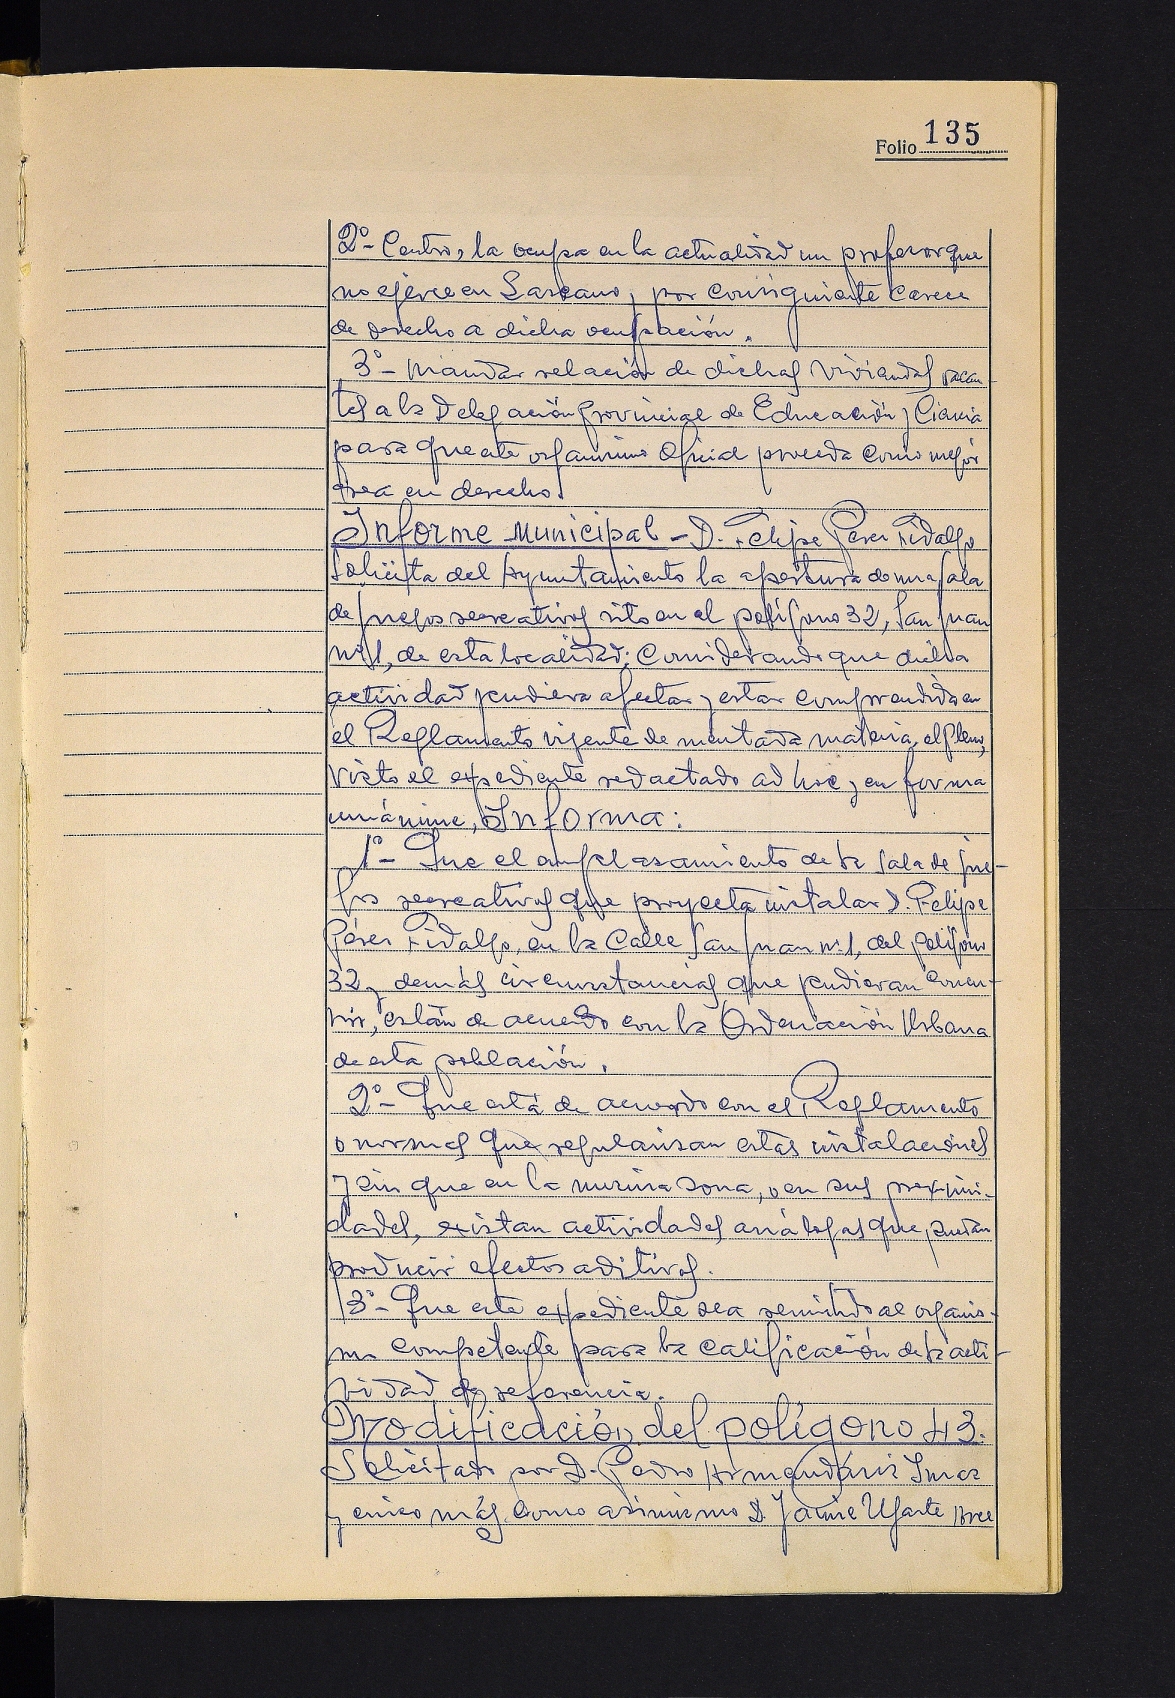 Folio 135
2º- Centro, la ocupa en la actualidad un profesor que
no ejerce en Lazcano, por consiguiente carece
de derecho a dicha ocupación.
3º- Mandar relación de dichas viviendas vacan-
tes a la Delegación Provincial de Educación y Ciencia
para que este organismo Oficial proceda como mejor
crea en derecho.
Informe municipal - D. Felipe Pérez Fidalgo
Solicita del Ayuntamiento la apertura de una sala
de juegos recreativos sito en el polígono 32, San Juan
nº 1, de esta localidad; Considerando que dicha
actividad pudiera afectar y estar comprendida en
el Reglamento vigente de mentada materia, el Pleno,
visto el expediente redactado ad hoc y en forma
unánime, Informa:
1º- Que el emplazamiento de la sala de jue-
gos recreativos que proyecta instalar D. Felipe
Pérez Fidalgo, en la Calle San Juan nº 1, del polígono
32 y demás circunstancias que pudieran concu-
rrir, están de acuerdo con la Ordenación Urbana
de esta población.
2º- Que está de acuerdo con el Reglamento
o normas que regularizan estas instalaciones
y sin que en la misma zona, o en sus proximi-
dades, existan actividades análogas que puedan
producir efectos aditivos.
3º- Que este expediente sea remitido al organis-
mo competente para la calificación de la acti-
vidad de referencia.
Modificación del polígono 43.
Solicitado por D. Pedro Armendáriz Imaz
y cinco más como asimismo D. Jaime Ugarte